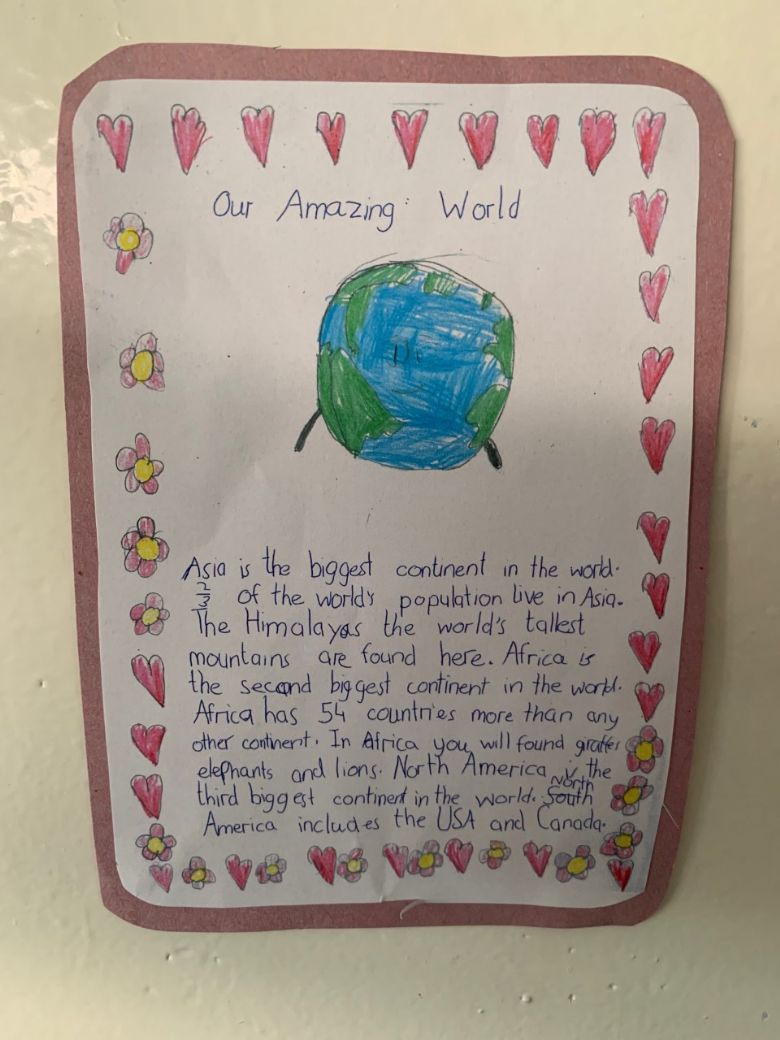 Our Amazing World
Asia is the biggest continent in the world.
2/3 of the world's population live in Asia.
The Himalayas the world's tallest
mountains are found here. Africa is
the second biggest continent in the world.
Africa has 54 countries more than any
other continent. In Africa you will found giraffes
elephants and lions. North America is the
third biggest continent in the world. South North
America includes the USA and Canada.